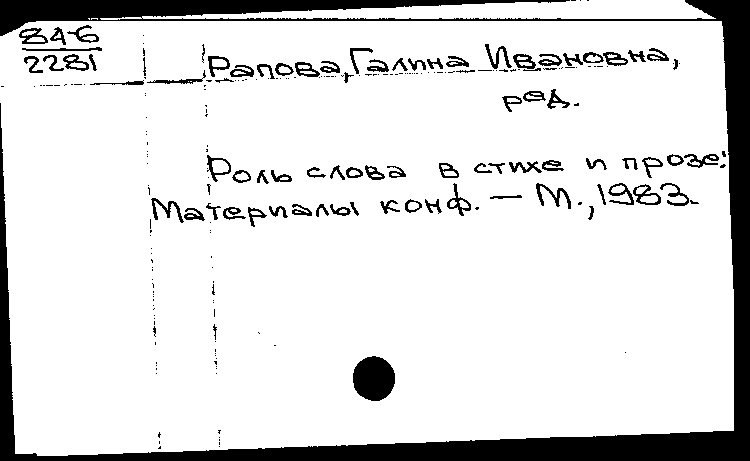 84-6
2281
Рапова, Галина Ивановна,
ред.
Роль слова в стихе и прозе:
Материалы конф. — М., 1983.